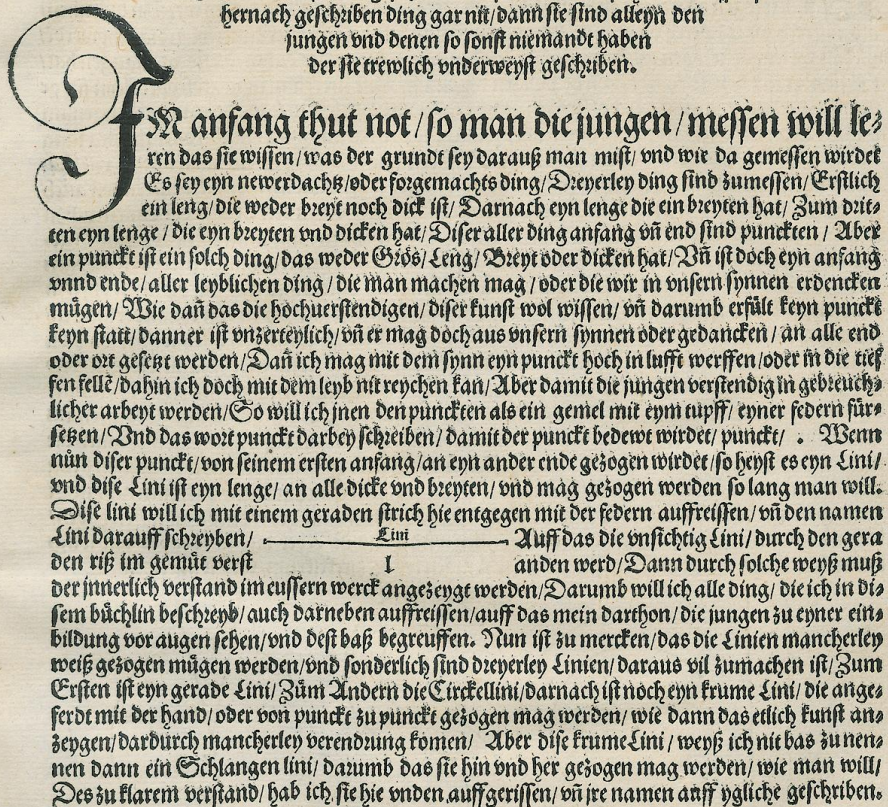 hernach geschriben ding gar nit/ dann sie sind alleyn den
jungen vnd denen so sonst niemandt haben
der sie trewlich vnderweyst geschriben.
IM anfang thut not/ so man die jungen/ messen will le⸗
ren das sie wissen/ was der grundt sey darauß man mist/ vnd wie da gemessen wirdet
Es sey eyn newerdachtz/ oder forgemachts ding/ Dreyerley ding sind zumessen/ Erstlich
ein leng/ die weder breyt noch dick ist/ Darnach eyn lenge die ein breyten hat/ Zum drit⸗
ten eyn lenge/ die eyn breyten vnd dicken hat/ Diser aller ding anfang vn̄ end sind punckten/ Aber
ein punckt ist ein solch ding/ das weder Grös/ Leng/ Breyt oder dicken hat/ Vn̄ ist doch eyn anfang
vnnd ende/ aller leyblichen ding/ die man machen mag/ oder die wir in vnsern synnen erdencken
mügen/ Wie dan̄ das die hochuerstendigen/ diser kunst wol wissen/ vn̄ darumb erfült keyn punckt
keyn statt/ dann er ist vnzerteylich/ vn̄ er mag doch aus vnsern synnen oder gedancken/ an alle end
oder ort gesetzt werden/ Dan̄ ich mag mit dem synn eyn punckt hoch in lufft werffen/ oder in die tief
fen fellē/ dahin ich doch mit dem leyb nit reychen kan/ Aber damit die jungen verstendig in gebreuch⸗
licher arbeyt werden/ So will ich jnen den punckten als ein gemel mit eym tupff/ eyner federn für⸗
setzen/ Vnd das wort punckt darbey schreiben/ damit der punckt bedewt wirdet/ punckt/ . Wenn
nün diser punckt/ von seinem ersten anfang/ an eyn ander ende gezogen wirdet/ so heyst es eyn Lini/
vnd dise Lini ist eyn lenge/ an alle dicke vnd breyten/ vnd mag gezogen werden so lang man will.
Dise lini will ich mit einem geraden strich hie entgegen mit der federn auffreissen/ vn̄ den namen
Lini darauff schreyben/ Lini Auff das die vnsichtig Lini/ durch den gera
den riß im gemüt verst 1 anden werd/ Dann durch solche weyß muß
der jnnerlich verstand im eussern werck angezeygt werden/ Darumb will ich alle ding/ die ich in di⸗
sem büchlin beschreyb/ auch darneben auffreissen/ auff das mein darthon/ die jungen zu eyner ein⸗
bildung vor augen sehen/ vnd dest baß begreuffen. Nun ist zu mercken/ das die Linien mancherley
weiß gezogen mügen werden/ vnd sonderlich sind dreyerley Linien/ daraus vil zumachen ist/ Zum
Ersten ist eyn gerade Lini/ Züm Andern die Circkellini/ darnach ist noch eyn krume Lini/ die ange⸗
ferdt mit der hand/ oder von punckt zu punckt gezogen mag werden/ wie dann das etlich kunst an⸗
zeygen/ dardurch mancherley verendrung komen/ Aber dise krume Lini/ weyß ich nit bas zu nen⸗
nen dann ein Schlangen lini/ darumb das sie hin vnd her gezogen mag werden/ wie man will/
Des zu klarem verstand/ hab ich sie hie vnden auffgerissen/ vn̄ jre namen auff ygliche geschriben.